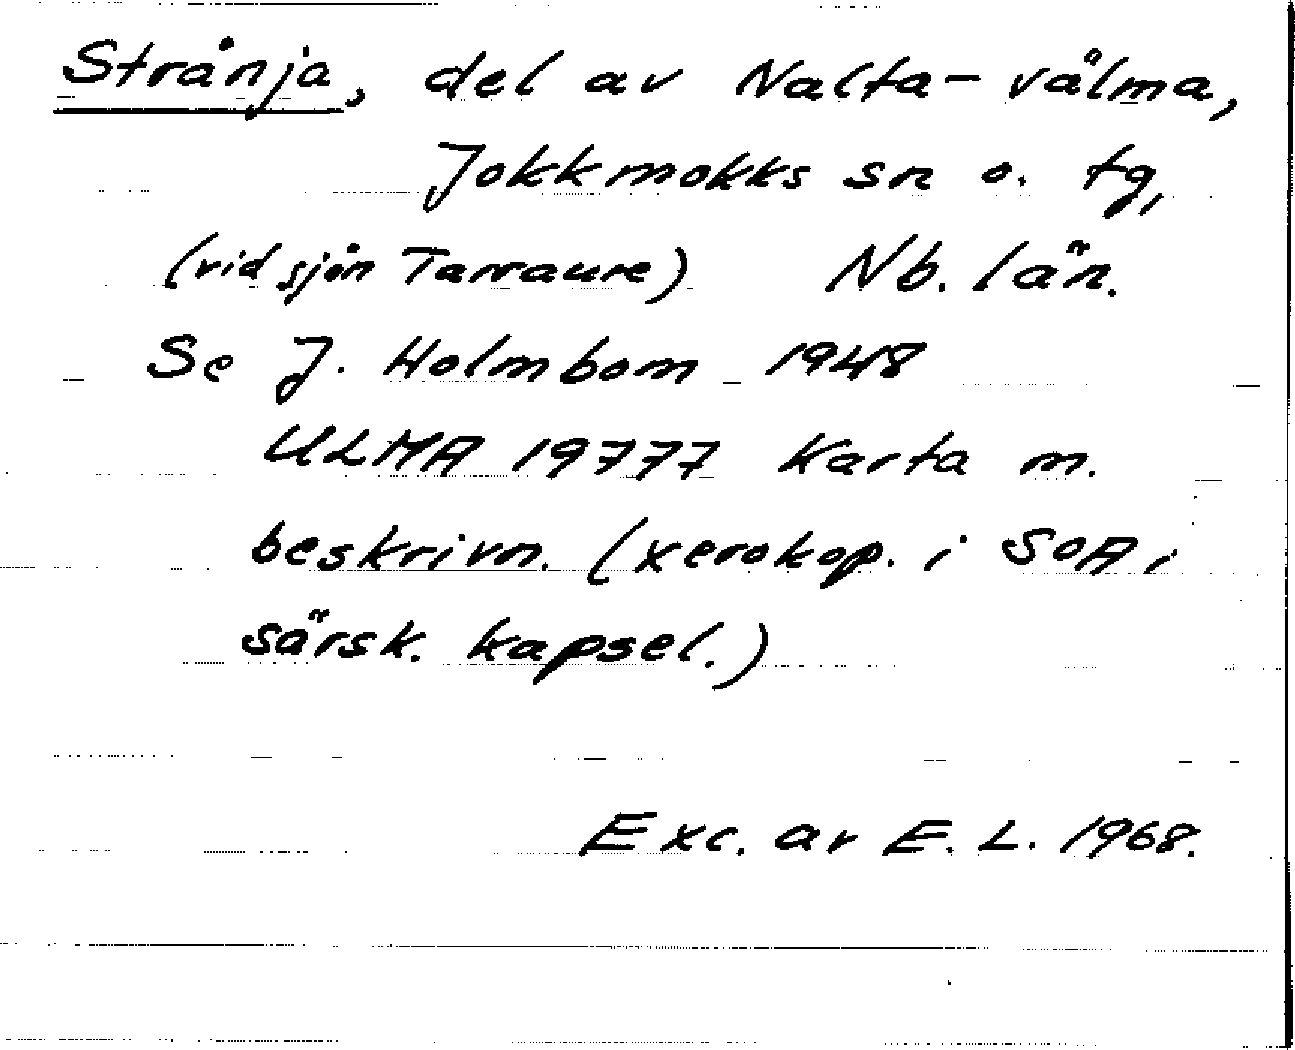 Strånja, del av Nalta-vålma,
Jokkmokks sn o. tg,
(vid sjön Tarraure) Nb. län.
Se J. Holmbom 1948
ULMA 19777 Karta m.
beskrivn. (xerokop. i SOA i
särsk. kapsel.)
Exc. av E. L. 1968.